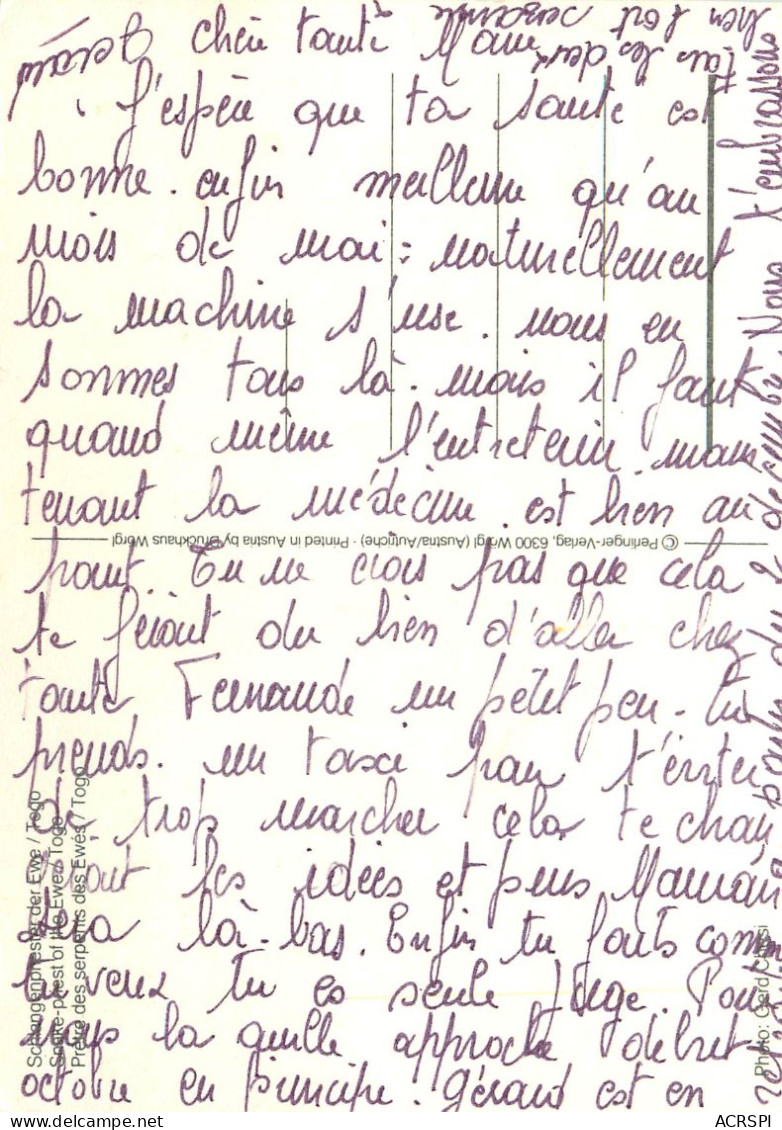 chère tante Mane
J'espère que ta santé est
bonne. enfin meilleure qu'au
mois de mai: naturellement
la machine s'use. nous en
sommes tous là. mais il faut
quand même l'entretenir. main
tenant la médecine est bien au
point. Tu ne crois pas que cela
te ferait du bien d'aller chez
tante Fernande un petit peu. tu
prends un taxi pour t'éviter
de trop marcher cela te chan
gerait les idées et puis Maman
sera là-bas. Enfin tu fais comm
tu veux tu es seule juge. Pour
nous la quille approche début
octobre en principe. Gérard est en
décembre. Nous t'embrassons
tous les deux
bien fort Suzanne
Gérard
© Perlinger-Verlag, 6300 Wörgl (Austria/Autriche) · Printed in Austria by Druckhaus Wörgl
Schlangenpriester der Ewe / Togo
Snake-priest of the Ewes / Togo
Prêtre des serpents des Ewés / Togo
Photo: Gerd
ACRSPI